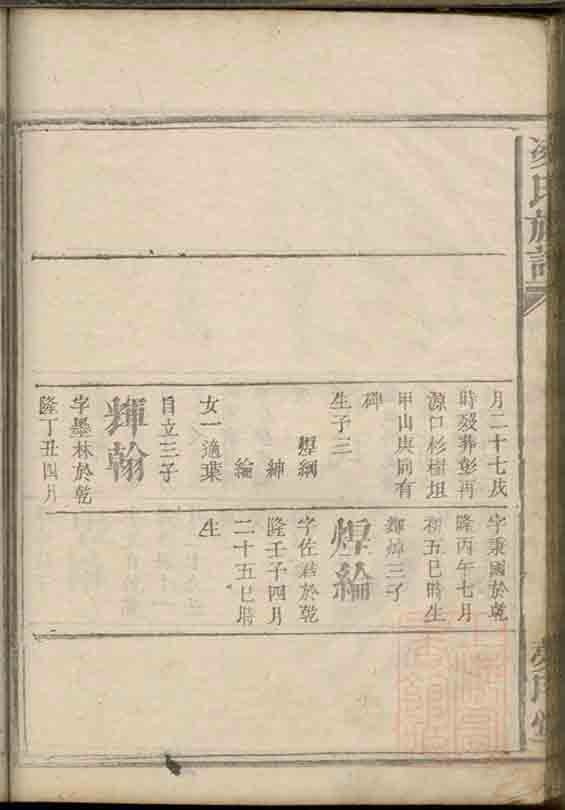 月二十七戌
時歿葬彭再
源口杉樹坦
甲山庚向有
碑
生子三
煋綱
紳
綸
女一適葉
自立三子
輝翰
字墨林於乾
隆丁丑四月
字秉國於乾
隆丙午七月
初五巳時生
輝焯三子
煋綸
字佐君於乾
隆壬子四月
二十五巳時
生